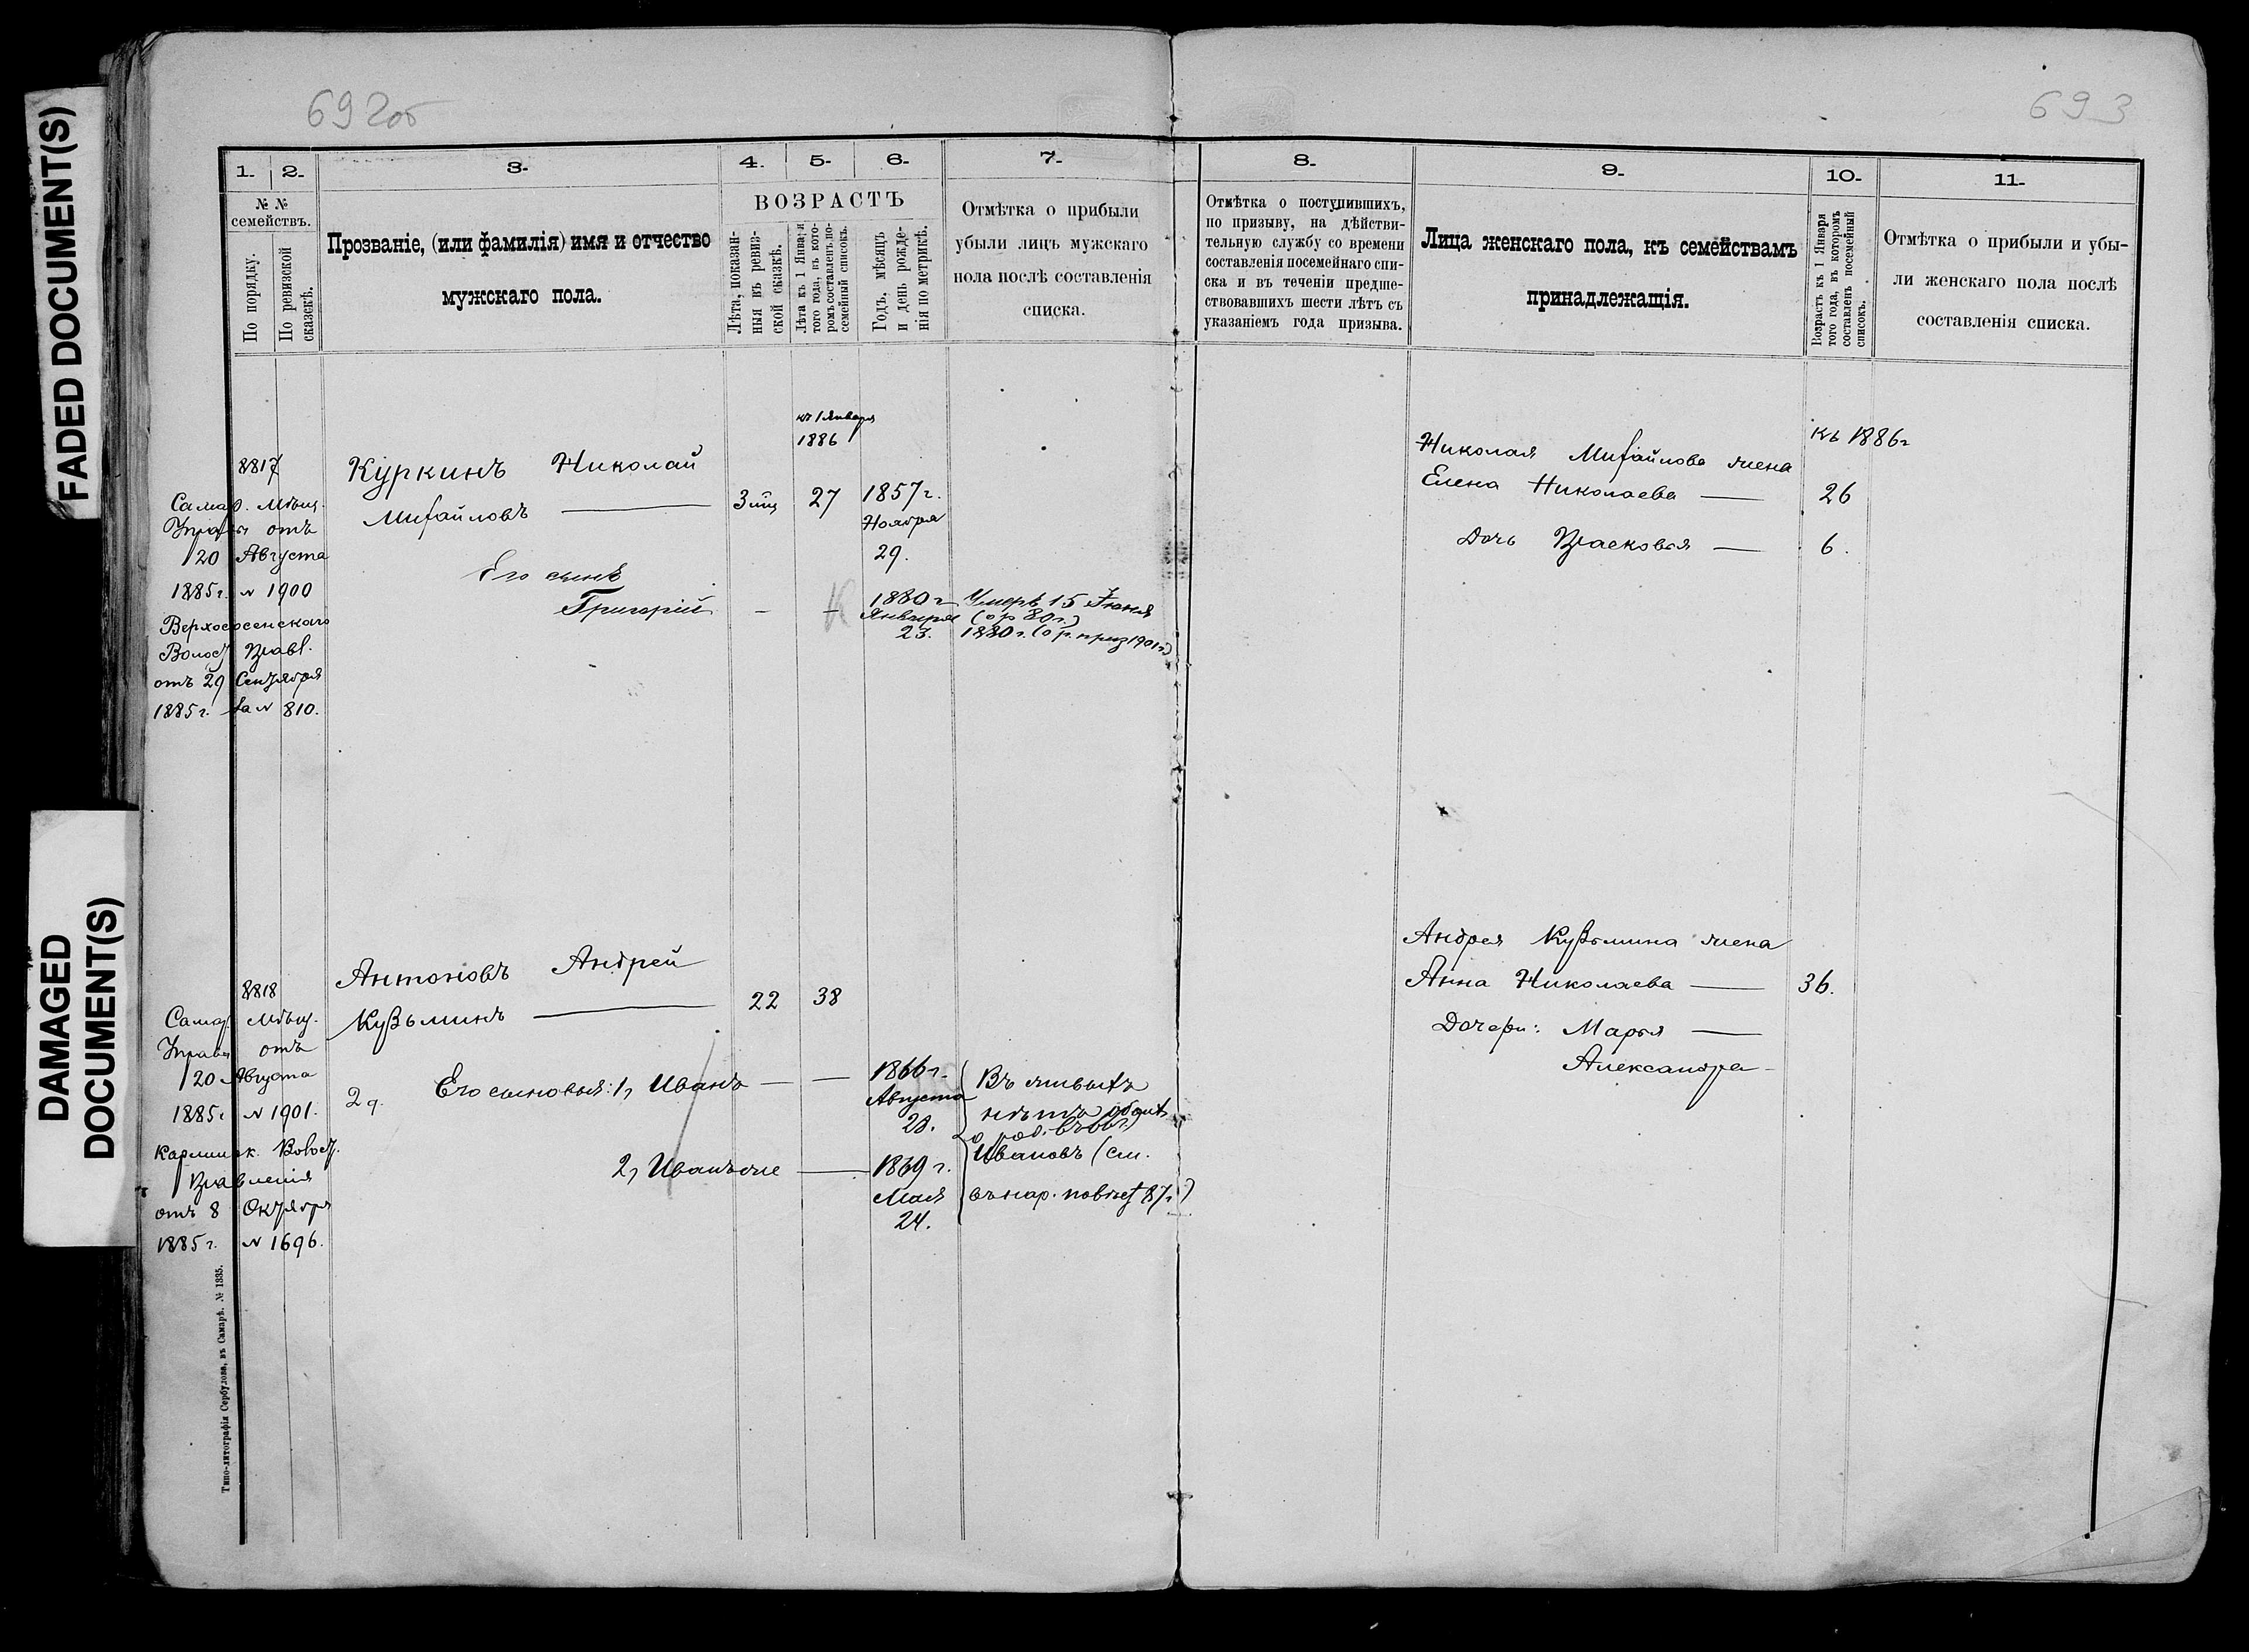 FADED DOCUMENT(S)
DAMAGED
DOCUMENT(S)
692об
693
1.
2.
3.
4.
5.
6.
7.
№ №
семействъ.
По порядку.
По ревизской
сказкѣ.
Прозваніе, (или фамилія) имя и отчество
мужскаго пола.
ВОЗРАСТЪ
Лѣта, показан-
ныя въ ревиз-
ской сказкѣ.
Лѣта къ 1 Января
того года, въ кото-
ромъ составленъ по-
семейный списокъ.
Годъ, мѣсяцъ
и день рожде-
нія по метрикѣ.
Отмѣтка о прибыли
убыли лицъ мужскаго
пола послѣ составленія
списка.
8.
9.
10.
11.
Отмѣтка о поступившихъ,
по призыву, на дѣйстви-
тельную службу со времени
составленія посемейнаго спи-
ска и въ теченіи предше-
ствовавшихъ шести лѣтъ съ
указаніемъ года призыва.
Лица женскаго пола, къ семействамъ
принадлежащія.
Возрастъ къ 1 Января
того года, въ которомъ
составленъ посемейный
списокъ.
Отмѣтка о прибыли и убы-
ли женскаго пола послѣ
составленія списка.
къ 1 Января
1886
8817
Куркинъ Николай
Михайловъ
3 мц
27
1857 г.
Ноября
29.
Самар. Мѣщ.
Управы отъ
20 Августа
1885 г. № 1900
Верхососенскаго
Волост Правл.
отъ 29 Сентября
1885 г. за № 810.
Его сынъ
Григорій
1880 г
Января
23.
Умеръ 15 Іюня
(ор 80 г.)
1880 г. (о р. приз 1901 г)
къ 1886 г
Николая Михайлова жена
Елена Николаева
26
Дочь Прасковья
6.
8818
Антоновъ Андрей
Кузьминъ
22
38
Самар Мѣщ.
Управы отъ
20 Августа
1885 г № 1901.
Волост.
Правленія
отъ 8 Октября
1885 г. № 1696.
2 д.
Его сыновья: 1, Иванъ
1866 г.
Августа
23.
Въ живыхъ
нѣтъ
2, Иванъ же
1869 г.
Мая
24.
Ивановъ (см.
87 г.)
Андрея Кузьмина жена
Анна Николаева
36.
Дочери: Марья
Александра
Типо-литографія Сербулова, въ Самарѣ. № 1335.